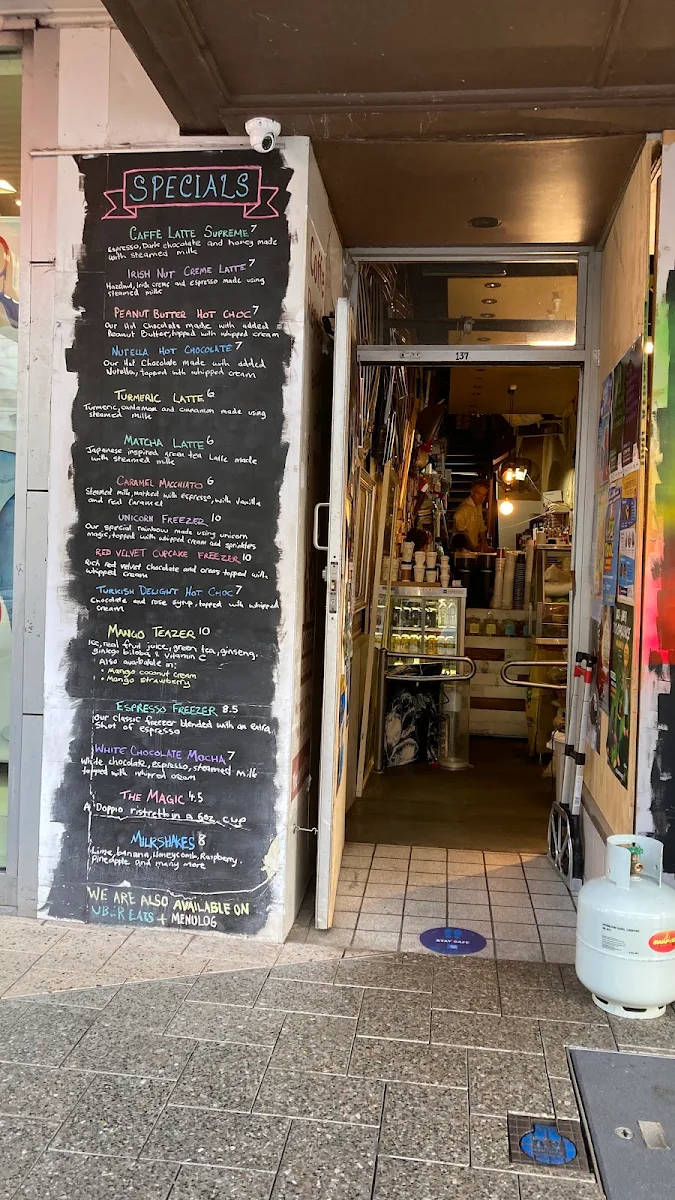 SPECIALS
CAFFE LATTE SUPREME 7
espresso, Dark chocolate and honey made
with steamed milk
IRISH NUT CREME LATTE 7
Hazelnut, Irish creme and espresso made using
steamed milk
PEANUT BUTTER HOT CHOC 7
Our Hot Chocolate made with added
Peanut Butter, topped with whipped cream
NUTELLA HOT CHOCOLATE 7
Our Hot Chocolate made with added
Nutella, topped with whipped cream
TURMERIC LATTE 6
Turmeric, cardamon and cinnamon made using
steamed milk
MATCHA LATTE 6
Japanese inspired green tea latte made
with steamed milk
CARAMEL MACCHIATO 6
Steamed milk, marked with espresso, with vanilla
and real caramel
UNICORN FREEZER 10
Our special rainbow made using unicorn
magic, topped with whipped cream and sprinkles
RED VELVET CUPCAKE FREEZER 10
Rich red velvet chocolate and oreos topped with
whipped cream
TURKISH DELIGHT HOT CHOC 7
Chocolate and rose syrup, topped with whipped
cream
MANGO TEAZER 10
Ice, real fruit juice, green tea, ginseng,
ginkgo biloba & vitamin C
Also available in:
• Mango coconut cream
• Mango strawberry
ESPRESSO FREEZER 8.5
Our classic freezer blended with an extra
shot of espresso
WHITE CHOCOLATE MOCHA 7
White chocolate, espresso, steamed milk
topped with whipped cream
THE MAGIC 4.5
A Doppio ristretto in a 6oz cup
MILKSHAKES 8
Lime, banana, Honeycomb, Raspberry,
Pineapple and many more
WE ARE ALSO AVAILABLE ON
UBER EATS + MENULOG
137
STAY SAFE